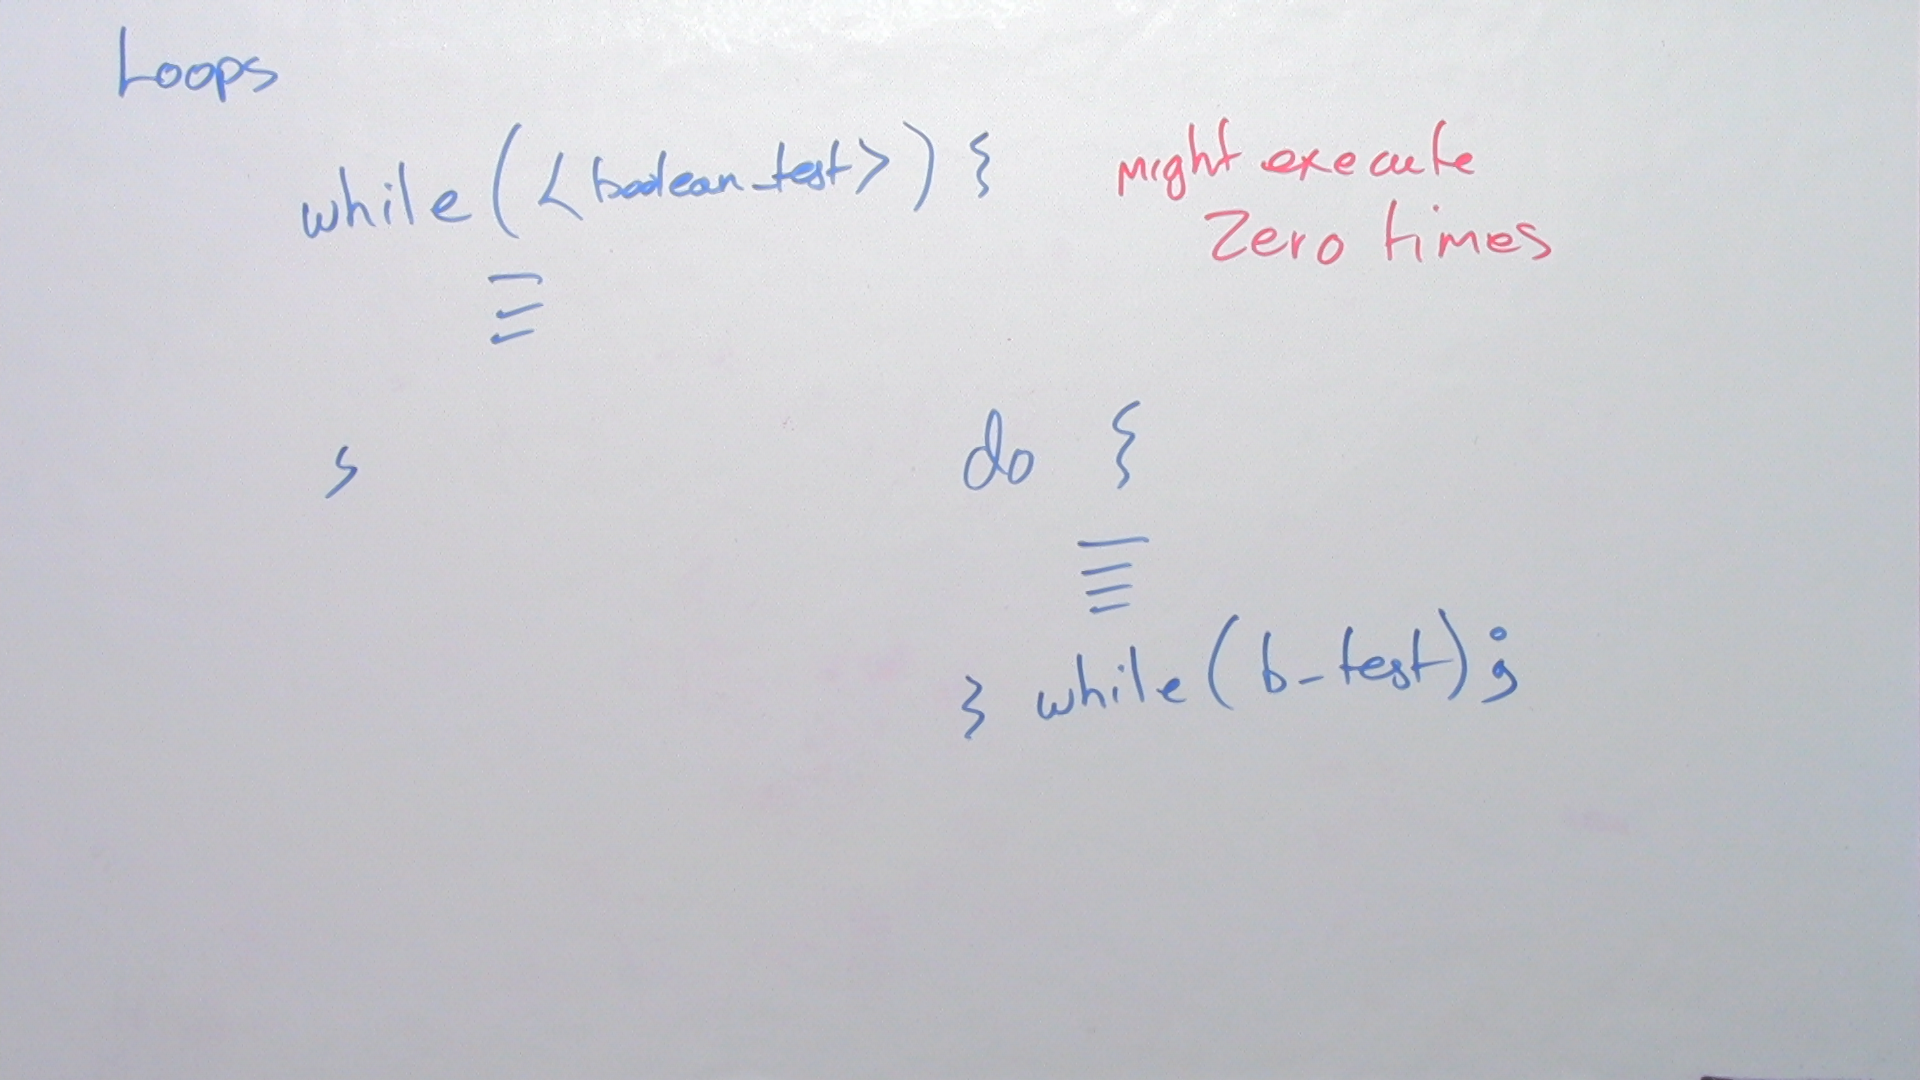 Loops
while (<boolean_test>) {
might execute
Zero times
}
do {
} while (b_test);